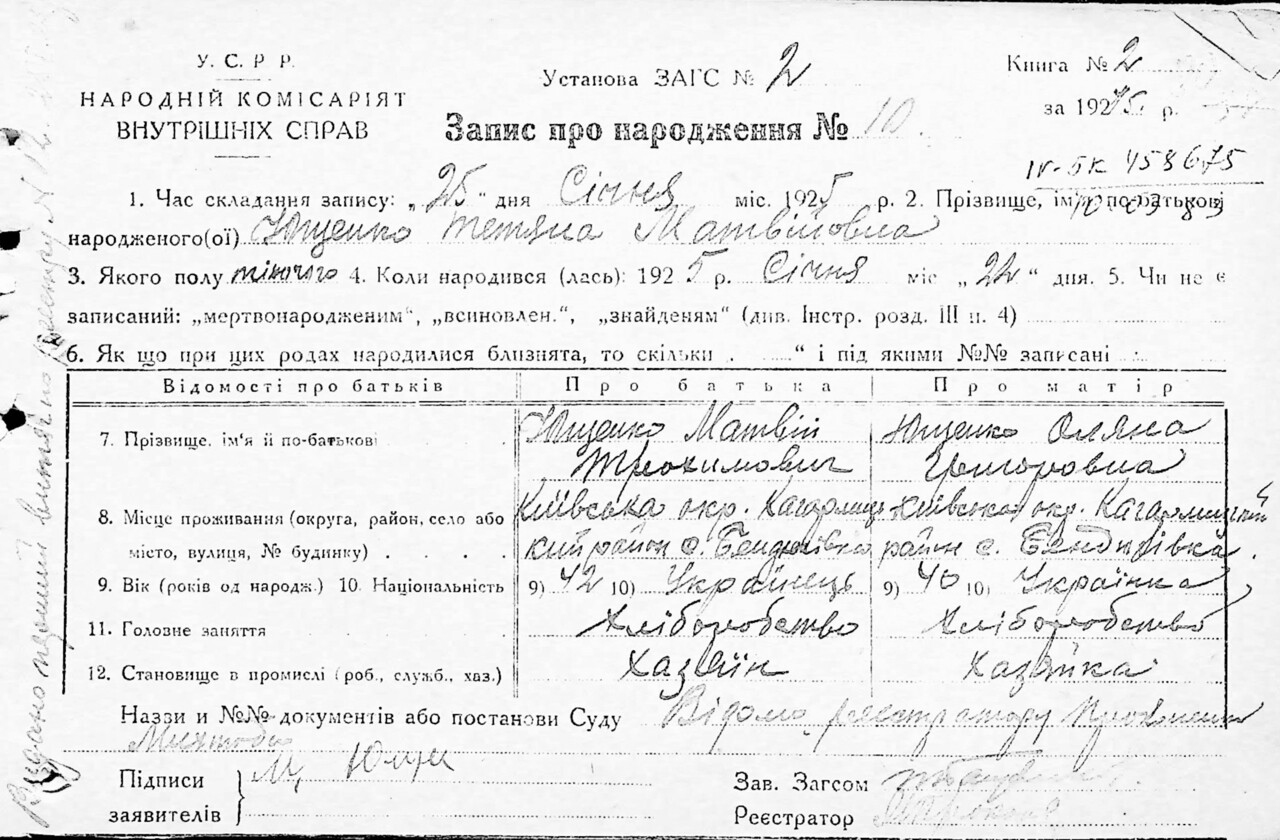 У. С. Р. Р.
НАРОДНІЙ КОМІСАРІЯТ
ВНУТРІШНІХ СПРАВ
Установа ЗАГС № 2
Книга № 2
за 1925 р.
Запис про народження № 10
IV-БК 458675
1. Час складання запису: „25“ дня Січня міс. 1925 р. 2. Прізвище, ім'я по-батькові
народженого(ої) Ющенко Тетяна Матвійовна
3. Якого полу жіночого 4. Коли народився (лась): 1925 р. Січня міс „22“ дня. 5. Чи не є
записаний: „мертвонародженим“, „всиновлен.“, „знайденям“ (див. Інстр. розд. III п. 4)
6. Як що при цих родах народилися близнята, то скільки . “ і під якими №№ записані
Відомості про батьків Про батька Про матір
7. Прізвище, ім'я й по-батькові Ющенко Матвій Ющенко Оляна
Трохимович Григоровна
8. Місце проживання (округа, район, село або Київська окр. Кагарлиць Київська окр. Кагарлицький
місто, вулиця, № будинку) . . . . кий район с. Бендюгівка район с. Бендюгівка.
9. Вік (років од народж.) 10. Національність 9) 42 10) Українець 9) 40 10) Українка
11. Головне заняття Хліборобство Хліборобство
12. Становище в промислі (роб., служб., хаз.) Хазяїн Хазяйка
Назви и №№ документів або постанови Суду Відомо реєстратору
Підписи М. Юще
заявителів
Зав. Загсом
Реєстратор